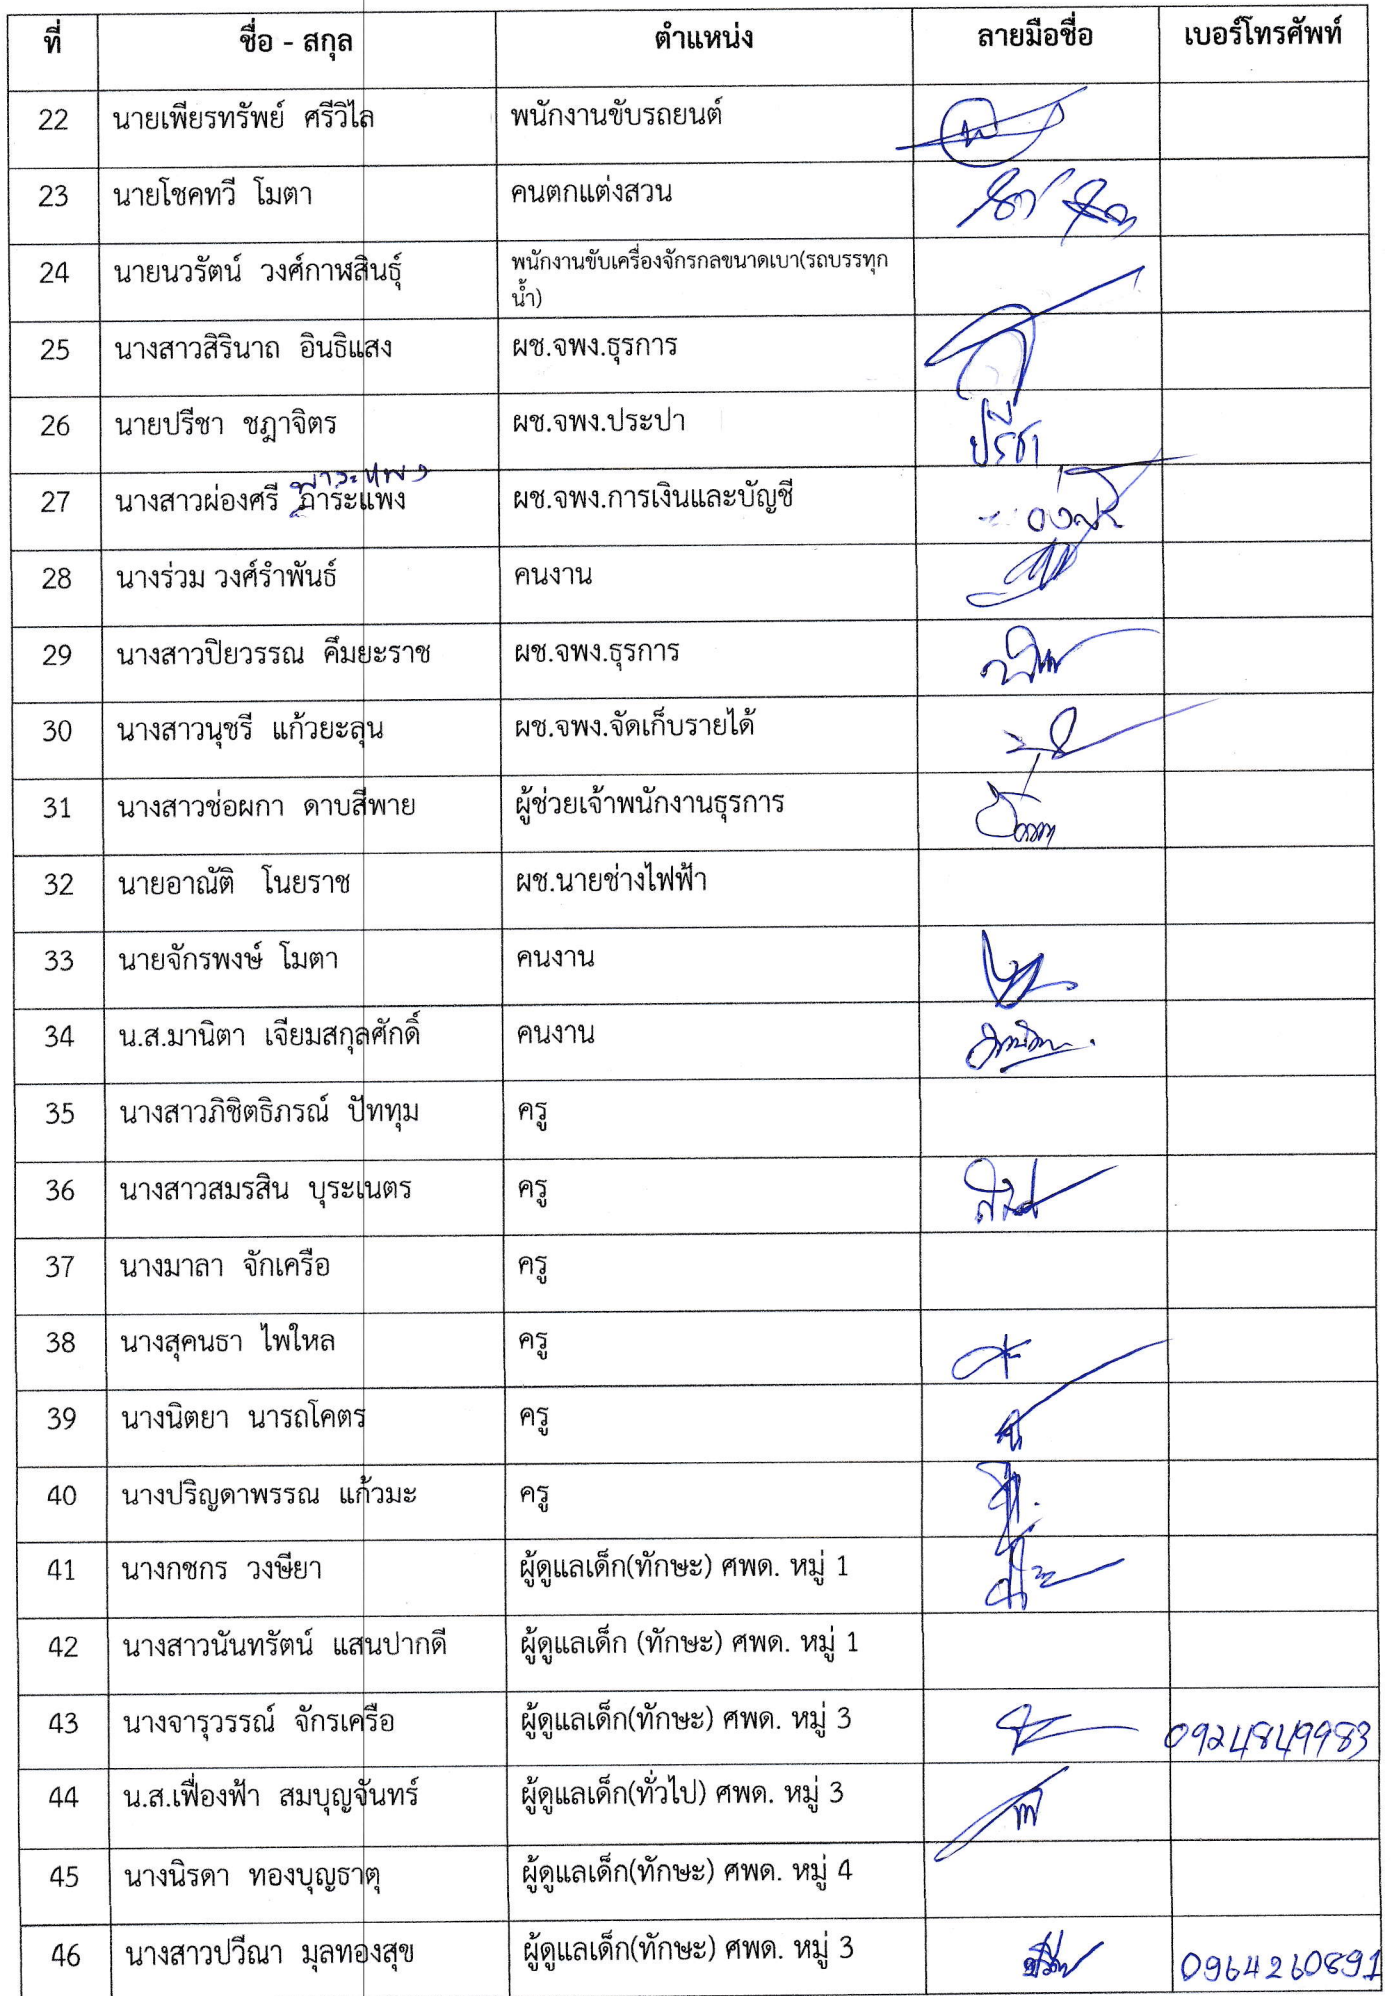 ที่ ชื่อ - สกุล ตำแหน่ง ลายมือชื่อ เบอร์โทรศัพท์
22 นายเพียรทรัพย์ ศรีวิไล พนักงานขับรถยนต์
23 นายโชคทวี โมตา คนตกแต่งสวน
24 นายนวรัตน์ วงศ์กาฬสินธุ์ พนักงานขับเครื่องจักรกลขนาดเบา(รถบรรทุก
น้ำ)
25 นางสาวสิรินาถ อินธิแสง ผช.จพง.ธุรการ
26 นายปรีชา ชฎาจิตร ผช.จพง.ประปา ปรีชา
27 นางสาวผ่องศรี ภาระแพง ผช.จพง.การเงินและบัญชี
28 นางร่วม วงศ์รำพันธ์ คนงาน
29 นางสาวปิยวรรณ คึมยะราช ผช.จพง.ธุรการ
30 นางสาวนุชรี แก้วยะลุน ผช.จพง.จัดเก็บรายได้
31 นางสาวช่อผกา ดาบสีพาย ผู้ช่วยเจ้าพนักงานธุรการ
32 นายอาณัติ โนยราช ผช.นายช่างไฟฟ้า
33 นายจักรพงษ์ โมตา คนงาน
34 น.ส.มานิตา เจียมสกุลศักดิ์ คนงาน
35 นางสาวภิชิตธิภรณ์ ปัททุม ครู
36 นางสาวสมรสิน บุระเนตร ครู
37 นางมาลา จักเครือ ครู
38 นางสุคนธา ไพใหล ครู
39 นางนิตยา นารถโคตร ครู
40 นางปริญดาพรรณ แก้วมะ ครู
41 นางกชกร วงษียา ผู้ดูแลเด็ก(ทักษะ) ศพด. หมู่ 1
42 นางสาวนันทรัตน์ แสนปากดี ผู้ดูแลเด็ก (ทักษะ) ศพด. หมู่ 1
43 นางจารุวรรณ์ จักรเครือ ผู้ดูแลเด็ก(ทักษะ) ศพด. หมู่ 3 0924849983
44 น.ส.เฟื่องฟ้า สมบุญจันทร์ ผู้ดูแลเด็ก(ทั่วไป) ศพด. หมู่ 3
45 นางนิรดา ทองบุญธาตุ ผู้ดูแลเด็ก(ทักษะ) ศพด. หมู่ 4
46 นางสาวปวีณา มุลทองสุข ผู้ดูแลเด็ก(ทักษะ) ศพด. หมู่ 3 0964260891